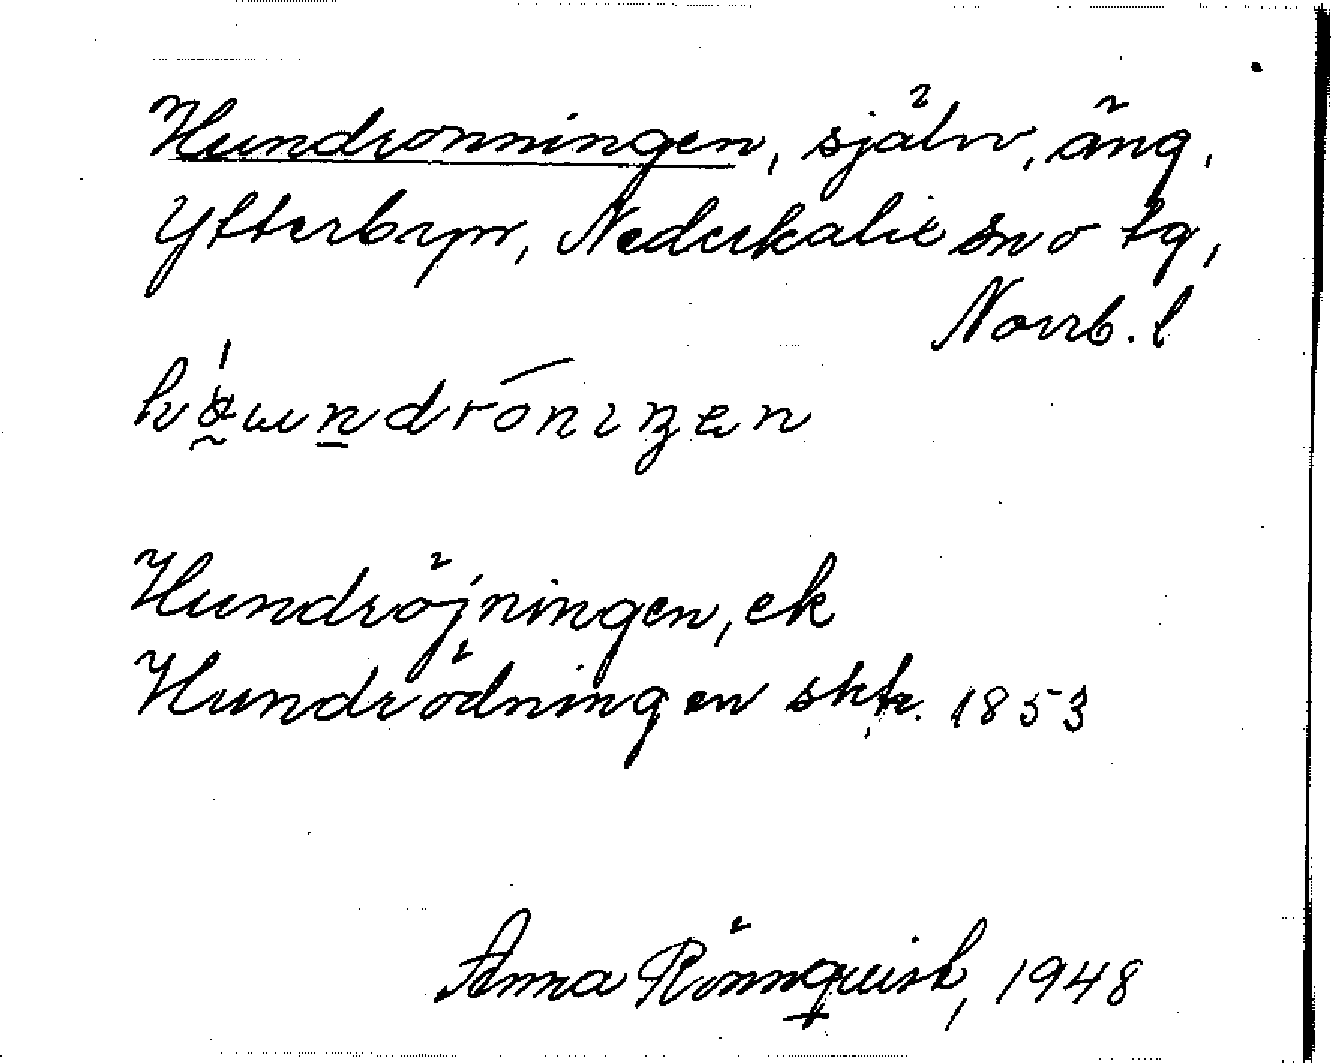 Hundronningen, självr, äng,
Ytterbyn, Nederkalix sn o tg,
Norrb. l
Hundröjningen, ek
Hundrödningen skk. 1853
Anna Rönnquist, 1948